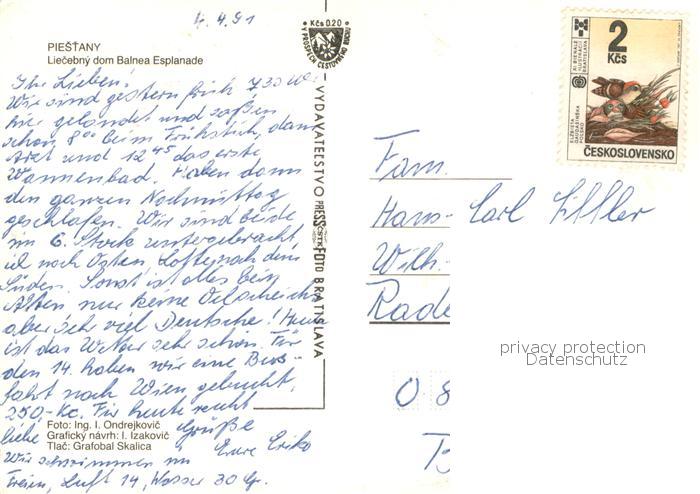 4.4.91
PIEŠŤANY
Liečebný dom Balnea Esplanade
Ihr Lieben!
Wir sind gestern früh 7 30
hier gelandet und saßen
schon 8 00 beim Frühstück, dann
Arzt und 12 45 das erste
Wannenbad. Haben dann
den ganzen Nachmittag
geschlafen. Wir sind beide
im 6. Stock untergebracht
ich nach Osten, nach dem
Süden. Sonst ist alles beim
Alten nur keine
aber sehr viel Deutsche! Heute
ist das Wetter sehr schön. Für
den 14. haben wir eine Bus-
fahrt nach Wien gebucht,
250,- Kc. Für heute recht
liebe Grüße
Eure Erika
Wir schwimmen im
Freien, Luft 14, Wasser 30 Gr.
Foto: Ing. I. Ondrejkovič
Grafický návrh: I. Izakovič
Tlač: Grafobal Skalica
Kčs 0,20
V PROSPECH CESTOVNÉHO RUCHU
VYDAVATEĽSTVO PRESSFOTO BRATISLAVA
ČSTK
XI BIENALE
ILUSTRÁCIÍ
BRATISLAVA
2
Kčs
ELŻBIETA
GAUDASIŃSKA
POĽSKO
ČESKOSLOVENSKO
Fam.
Hans-Carl
Wilh.-
Rade
privacy protection
Datenschutz
O 8